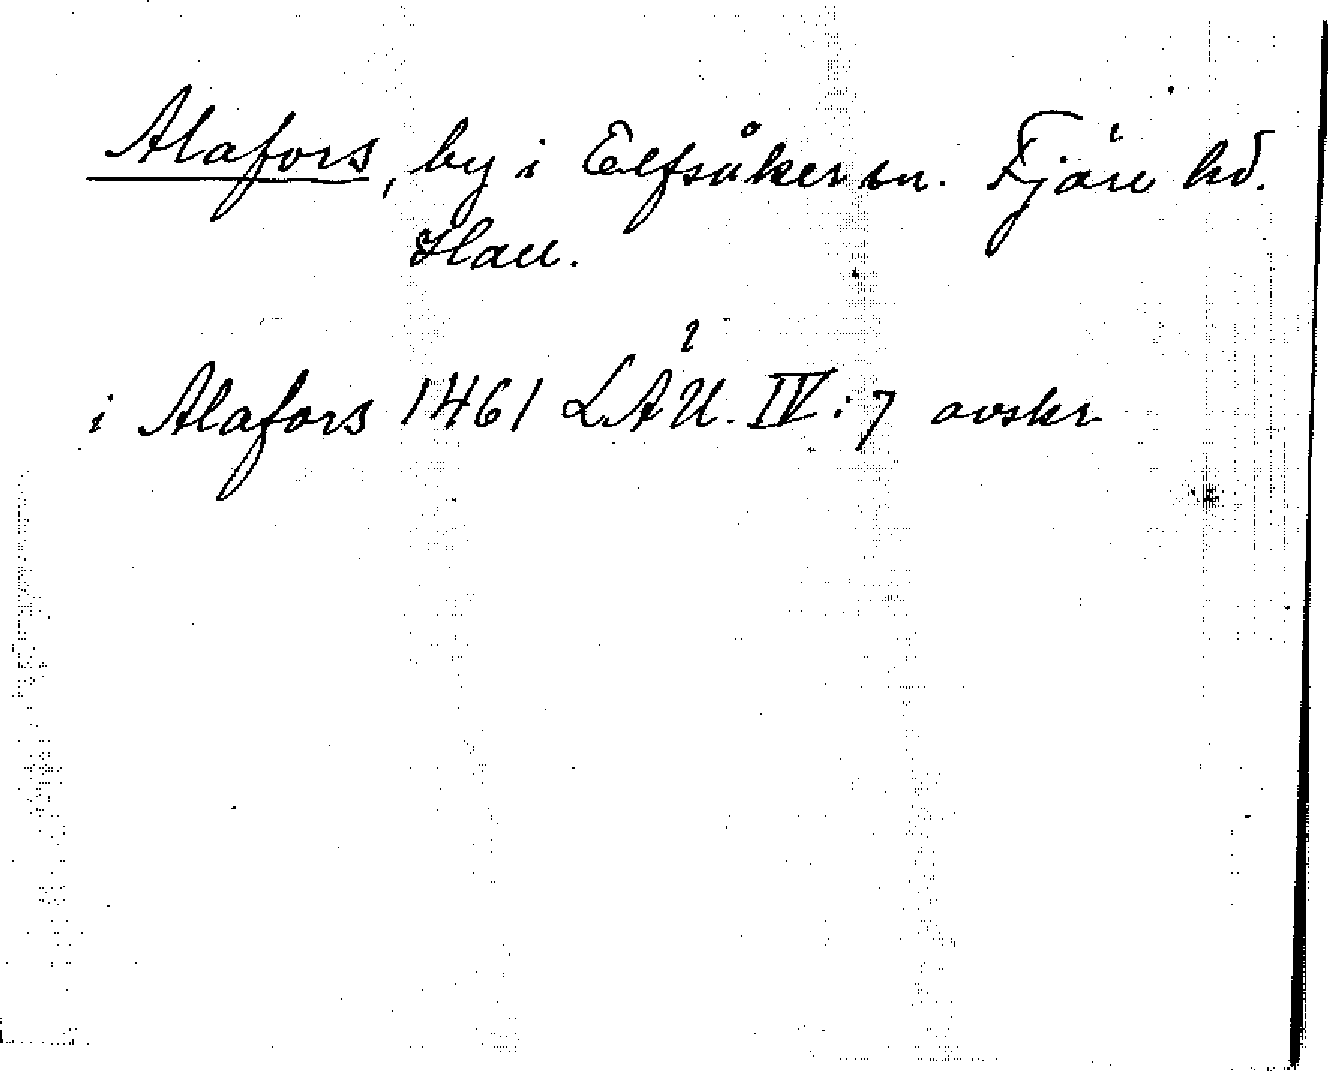 Alafors, by i Elfsåker sn. Fjäre hd.
Hall.
i Alafors 1461 LÄU. IV: 7 avskr